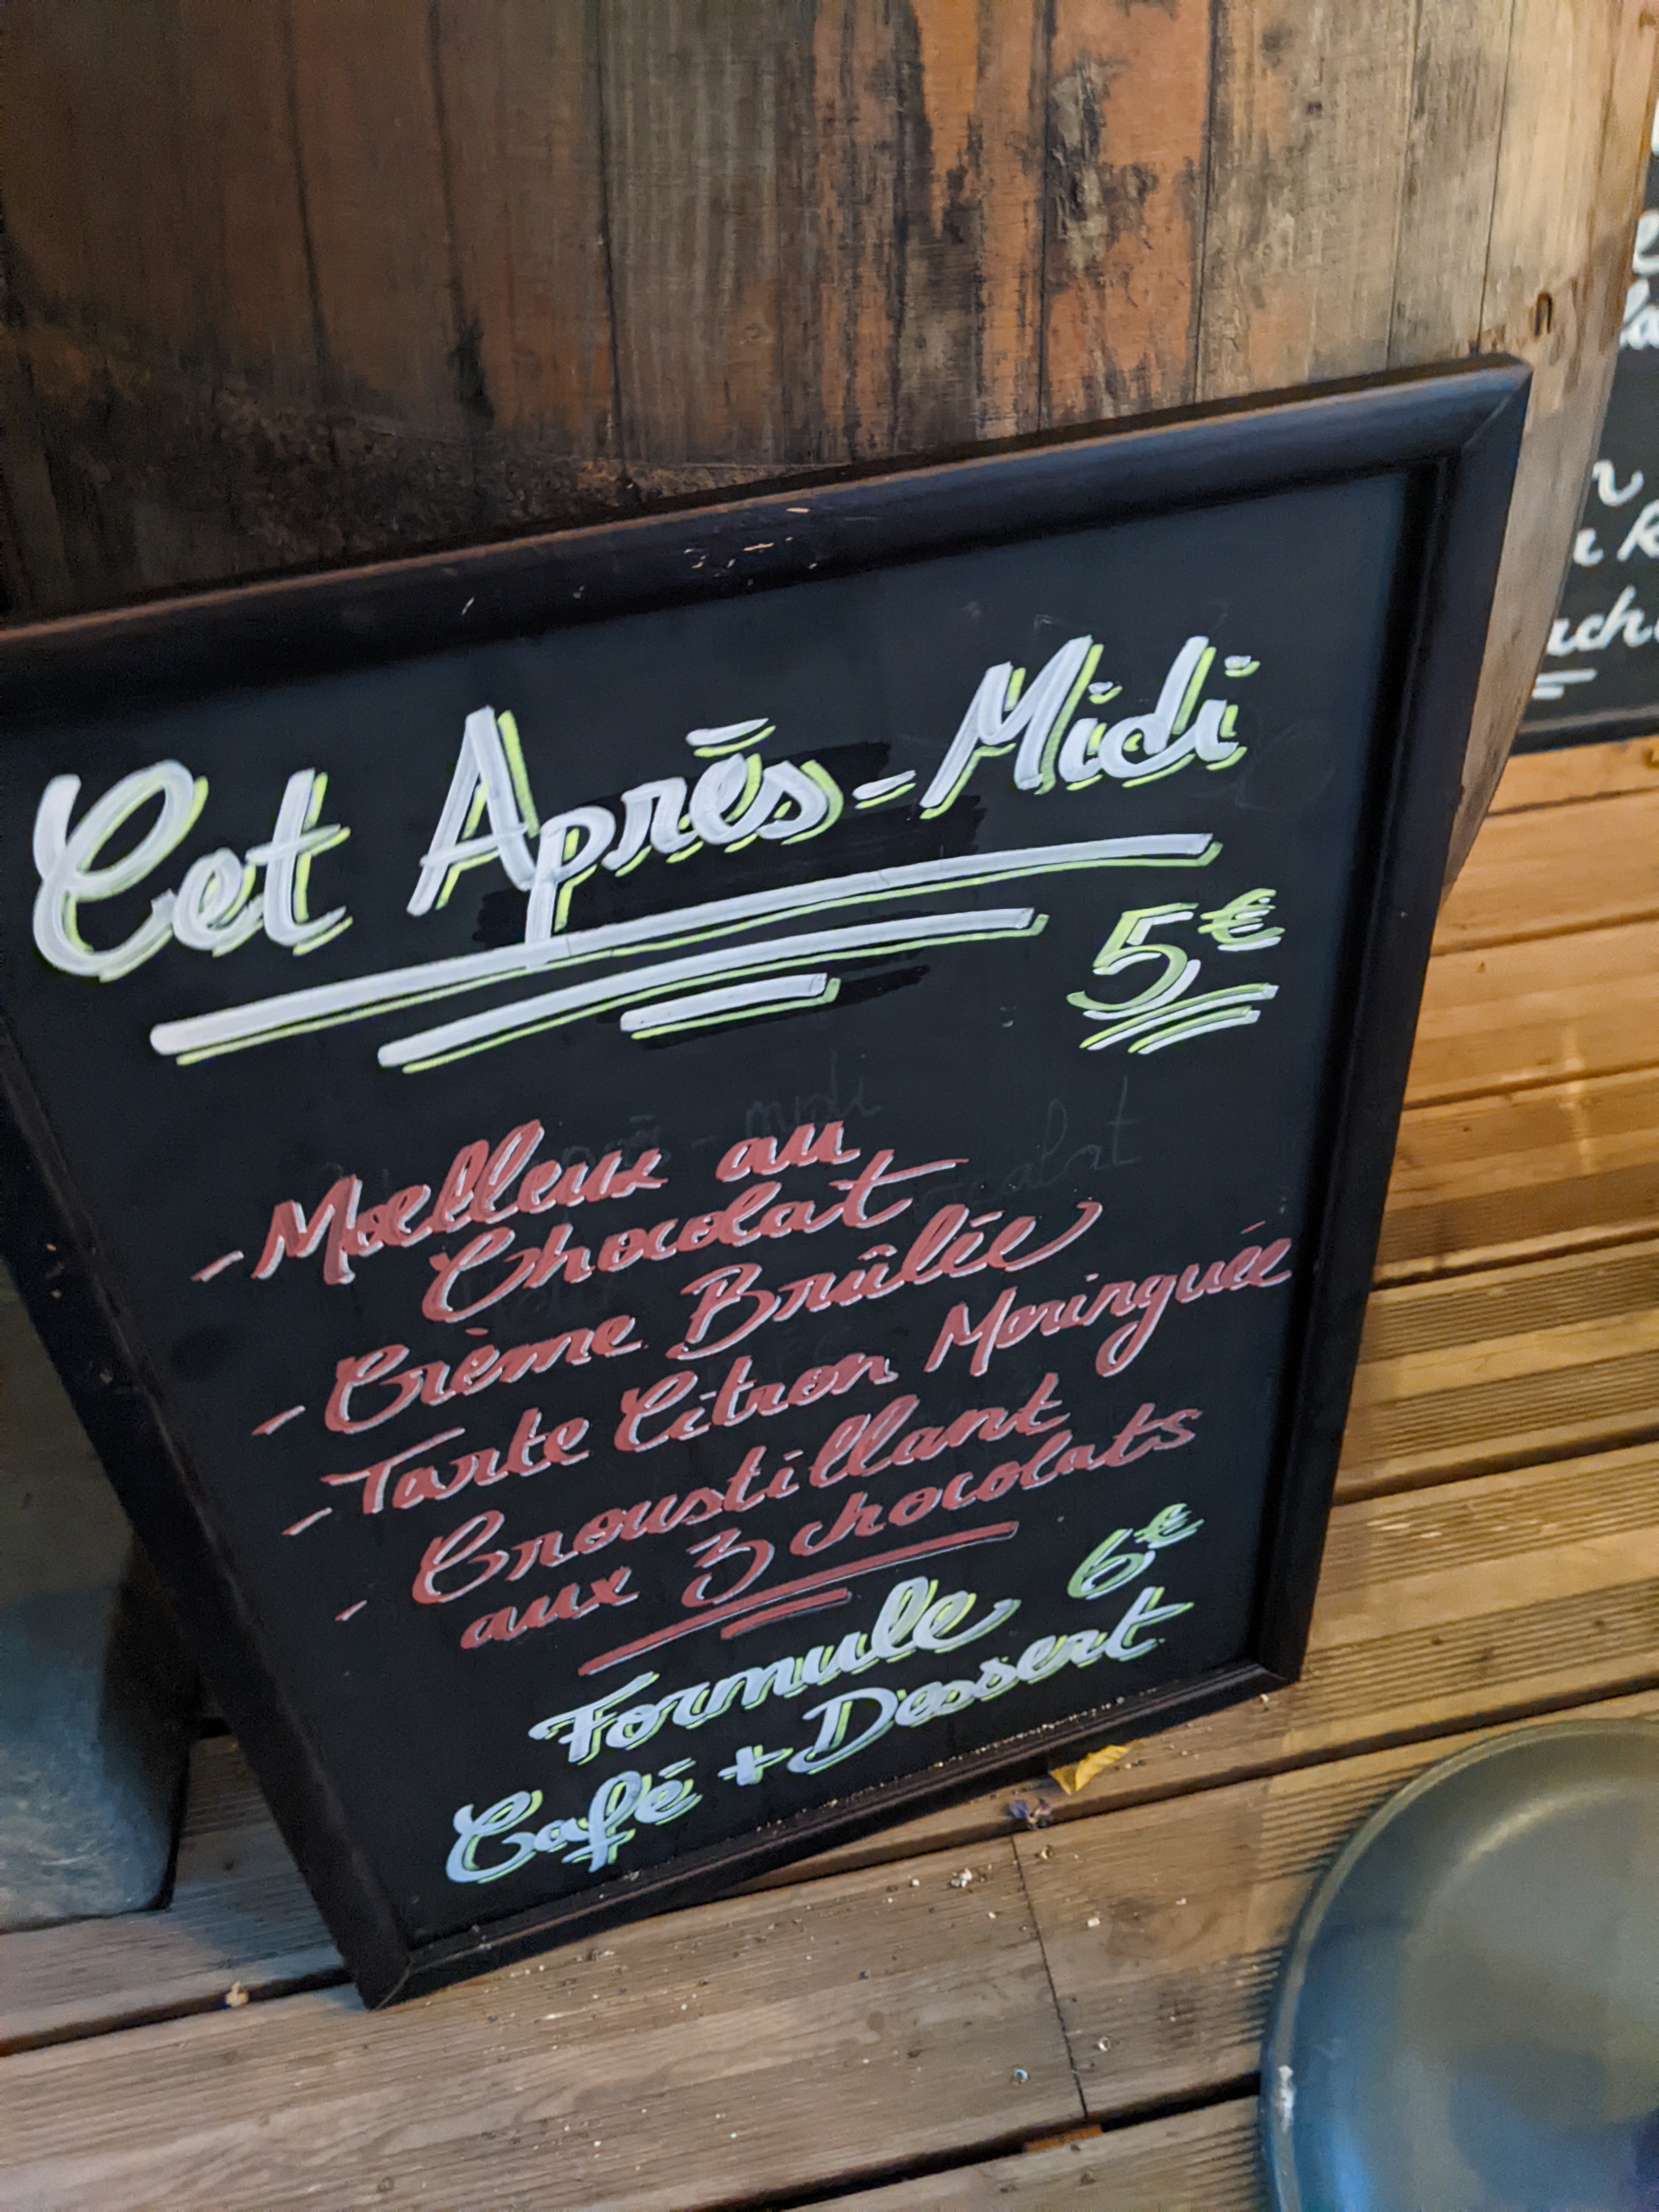 Cet Après-Midi
5€
- Moelleux au
Chocolat
- Crème Brûlée
- Tarte Citron Meringuée
- Croustillant
aux 3 chocolats
Formule 6€
Café + Dessert